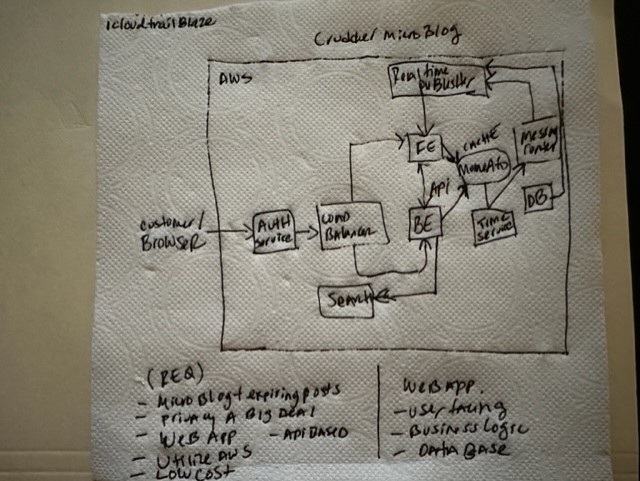 icloudtrailBlaze
Crudder MicroBlog
AWS
Realtime
PUBLISHER
FE
CACHE
MOMENTO
API
BE
TIME
SERVICE
DB
customer/
BROWSER
AUTH
Service
LOAD
BALANCER
Search
(REQ)
- MicroBlog + expiring posts
- privacy A BIG DEAL
- WEB APP - API BASED
- Utilize AWS
- LOW COST
WEB APP.
- user facing
- Business Logic
- DATA BASE